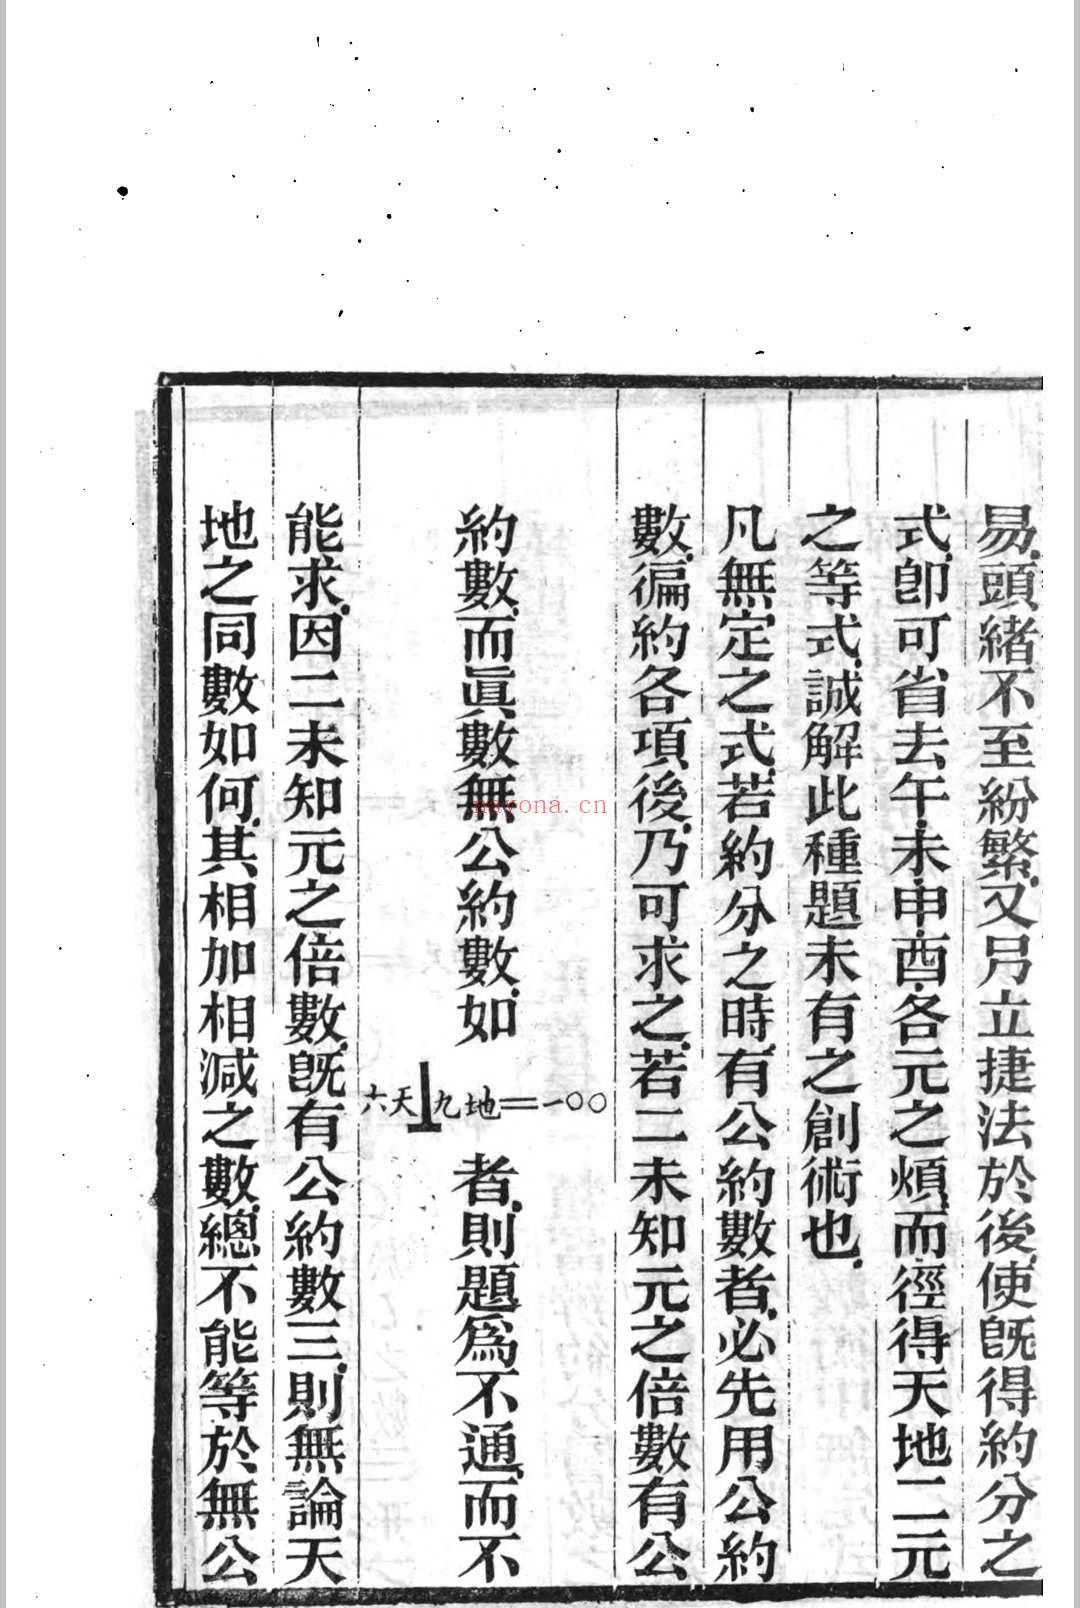 易頭緒不至紛繁又另立捷法於後使旣得約分之
式卽可省去午未申酉各元之煩而徑得天地二元
之等式誠解此種題未有之創術也
凡無定之式若約分之時有公約數者必先用公約
數徧約各項後乃可求之若二未知元之倍數有公
約數而眞數無公約數如 六天⊥九地=一〇〇 者則題爲不通而不
能求因二未知元之倍數旣有公約數三則無論天
地之同數如何其相加相減之數總不能等於無公
nayona.cn